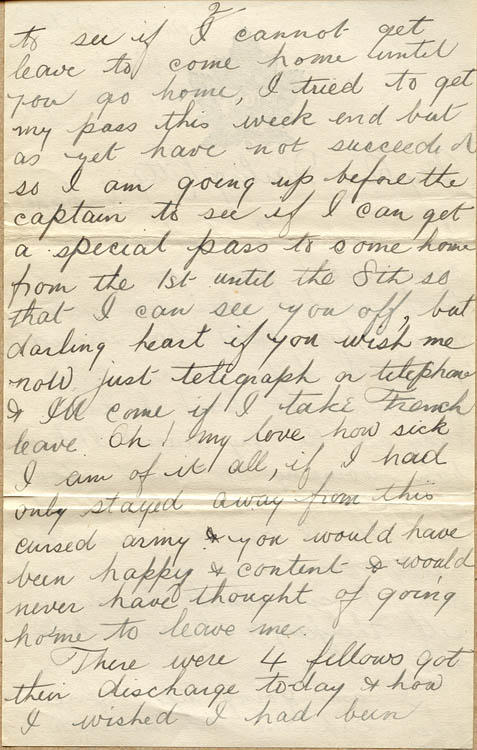 2/
to see if I cannot get
leave to come home until
you go home, I tried to get
my pass this week end but
as yet have not succeeded
so I am going up before the
captain to see if I can get
a special pass to come home
from the 1st until the 8th so
that I can see you off, but
darling heart if you wish me
now just telegraph or telephone
& I'll come if I take French
leave. Oh! my love how sick
I am of it all, if I had
only stayed away from this
cursed army & you would have
been happy & content & would
never have thought of going
home to leave me.
There were 4 fellows got
their discharge today & how
I wished I had been